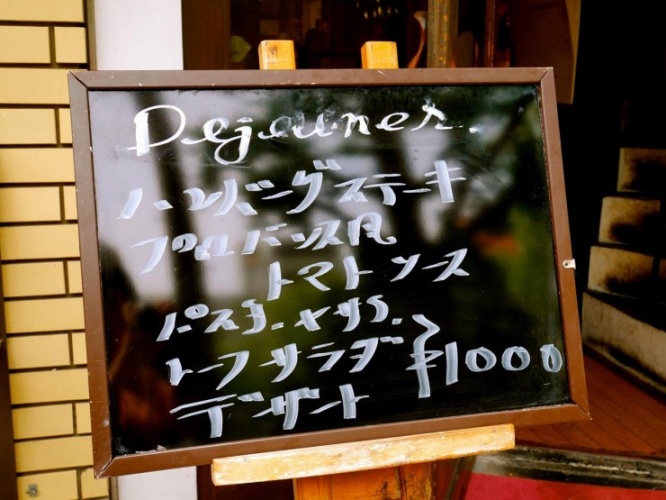 Dejeuner.
ハンバーグステーキ
プロバンス風
トマトソース
トーフサラダ
デザート
¥1000